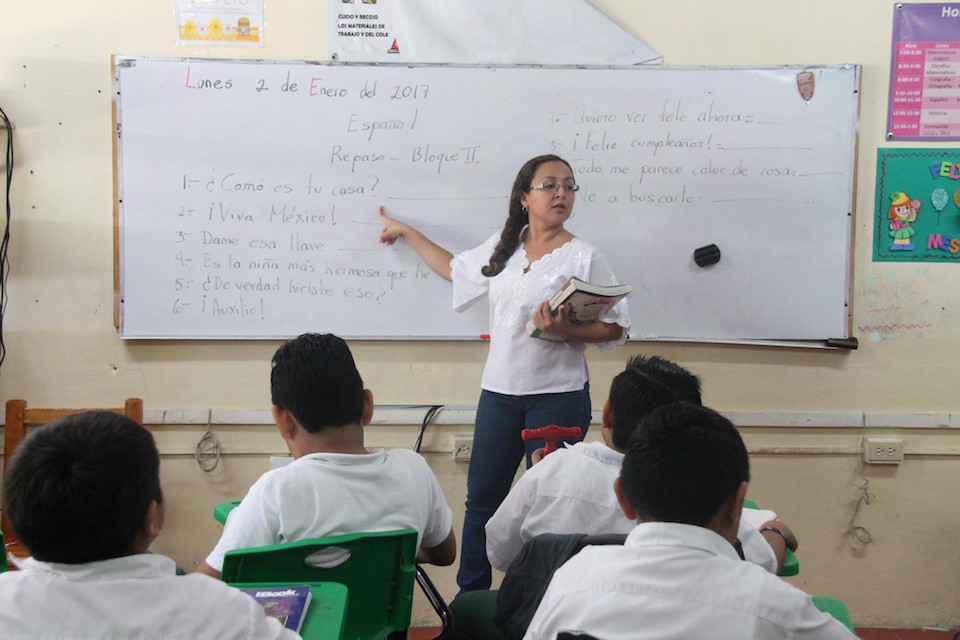 CUIDO Y RECOJO
LOS MATERIALES DE
TRABAJO Y DEL COLE
Lunes 2 de Enero del 2017
Español
Repaso - Bloque II
1.- ¿Como es tu casa?
2.- ¡Viva México!
3.- Dame esa llave
4.- Es la niña más hermosa que he
5.- ¿De verdad hiciste eso?
6.- ¡Auxilio!
7.- Quiero ver tele ahora=
8.- ¡Feliz cumpleaños!=
Todo me parece color de rosa=
a buscarlo-
Ho
Hora Lunes
Matemáticas
Desafíos
Matemáticas
Caligrafía
Ortografía
Español
Historia
Formación
FELI
MES
iBook